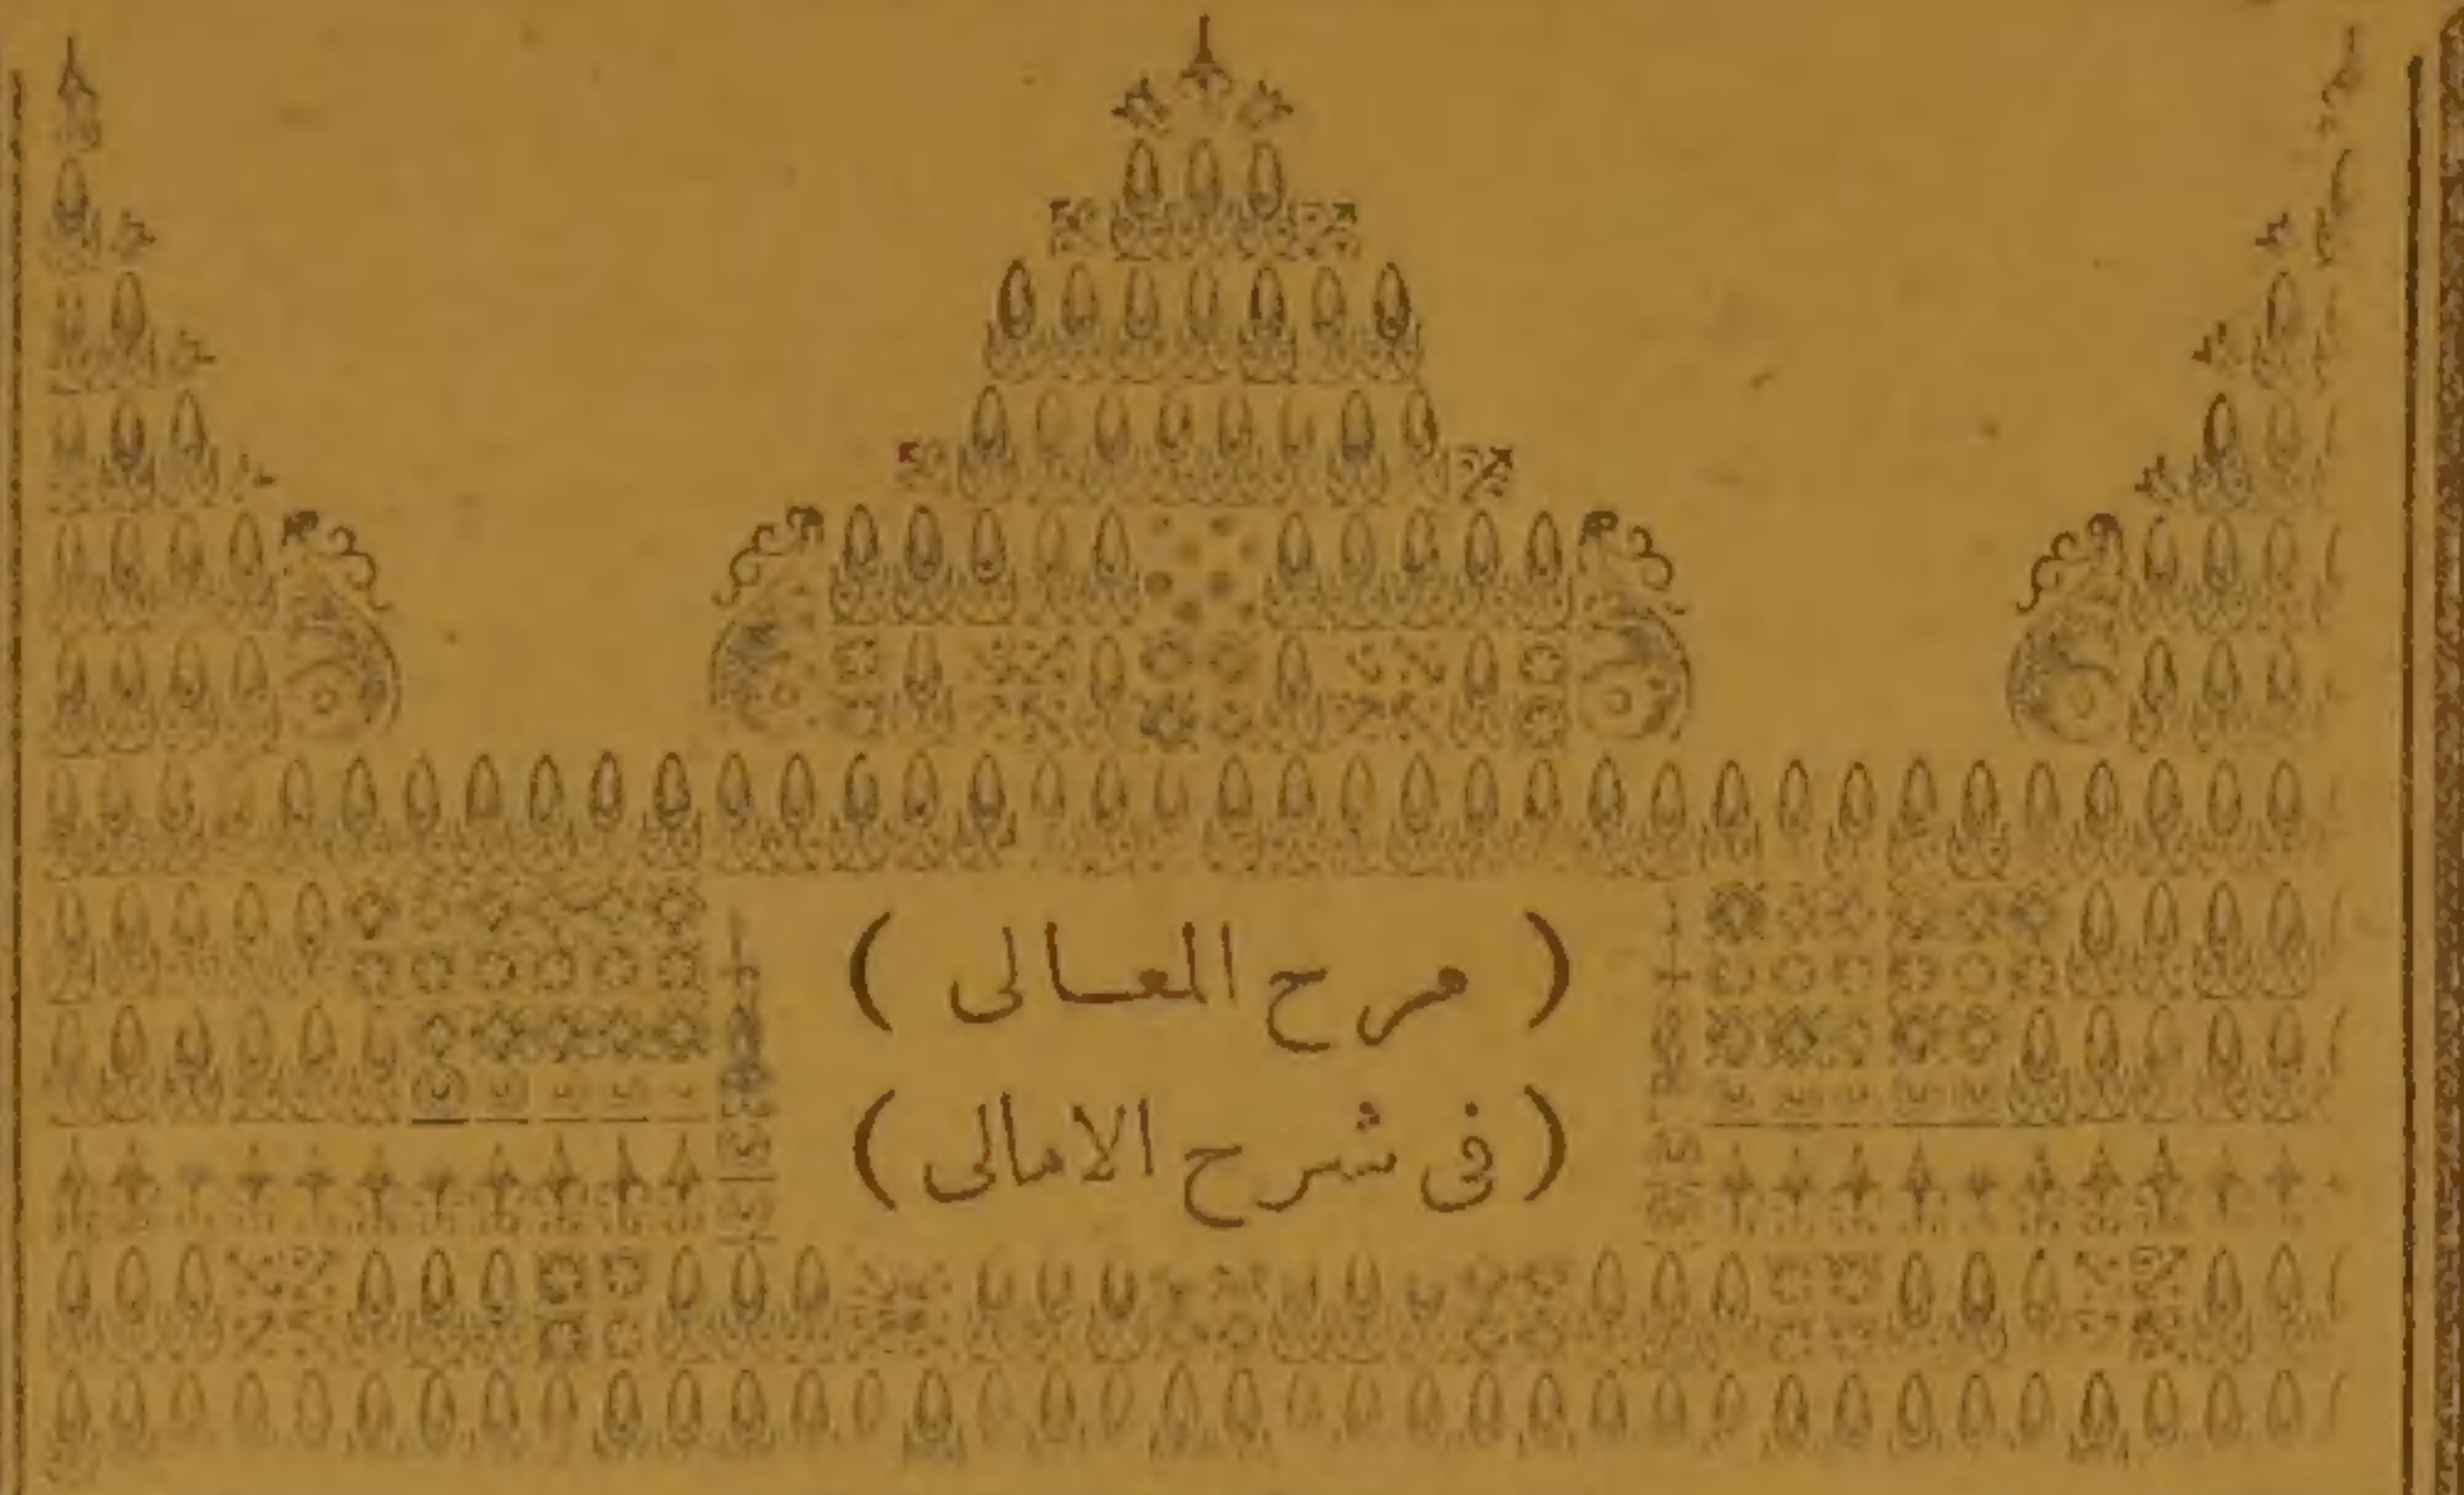 ( مرح المعالى )
( فى شرح الامالى )